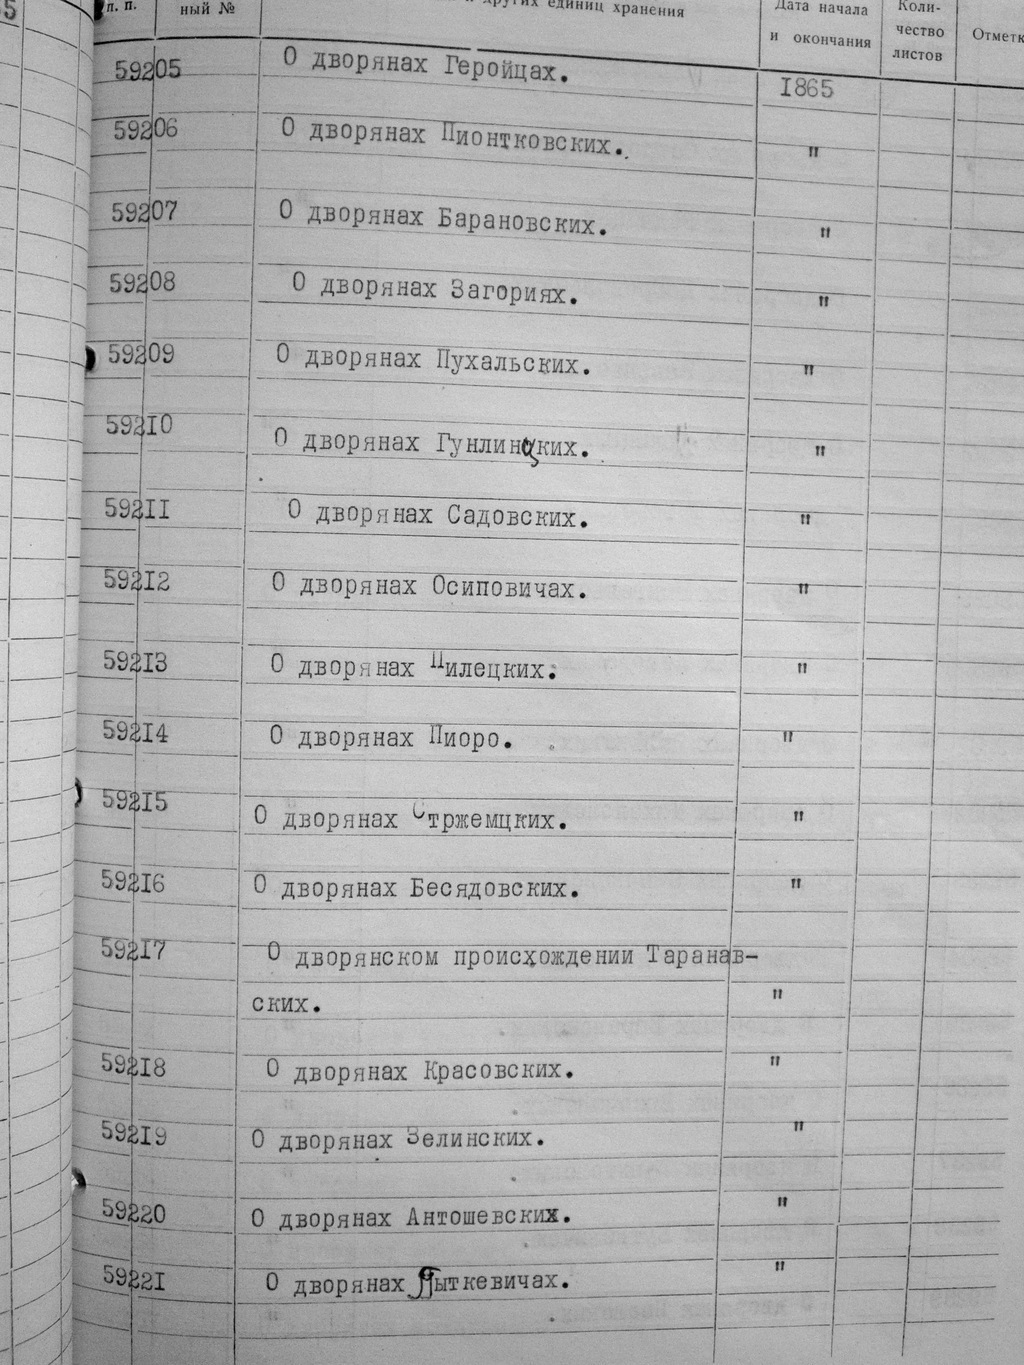 5
п. п. ный № других единиц хранения Дата начала и окончания Коли-чество листов Отметк
59205 О дворянах Геройцах. 1865
59206 О дворянах Пионтковских. "
59207 О дворянах Барановских. "
59208 О дворянах Загориях. "
59209 О дворянах Пухальских. "
59210 О дворянах Гунлинских. "
59211 О дворянах Садовских. "
59212 О дворянах Осиповичах. "
59213 О дворянах Пилецких. "
59214 О дворянах Пиоро. "
59215 О дворянах Стржемцких. "
59216 О дворянах Бесядовских. "
59217 О дворянском происхождении Таранав-
ских. "
59218 О дворянах Красовских. "
59219 О дворянах Зелинских. "
59220 О дворянах Антошевских. "
59221 О дворянах ыткевичах. "